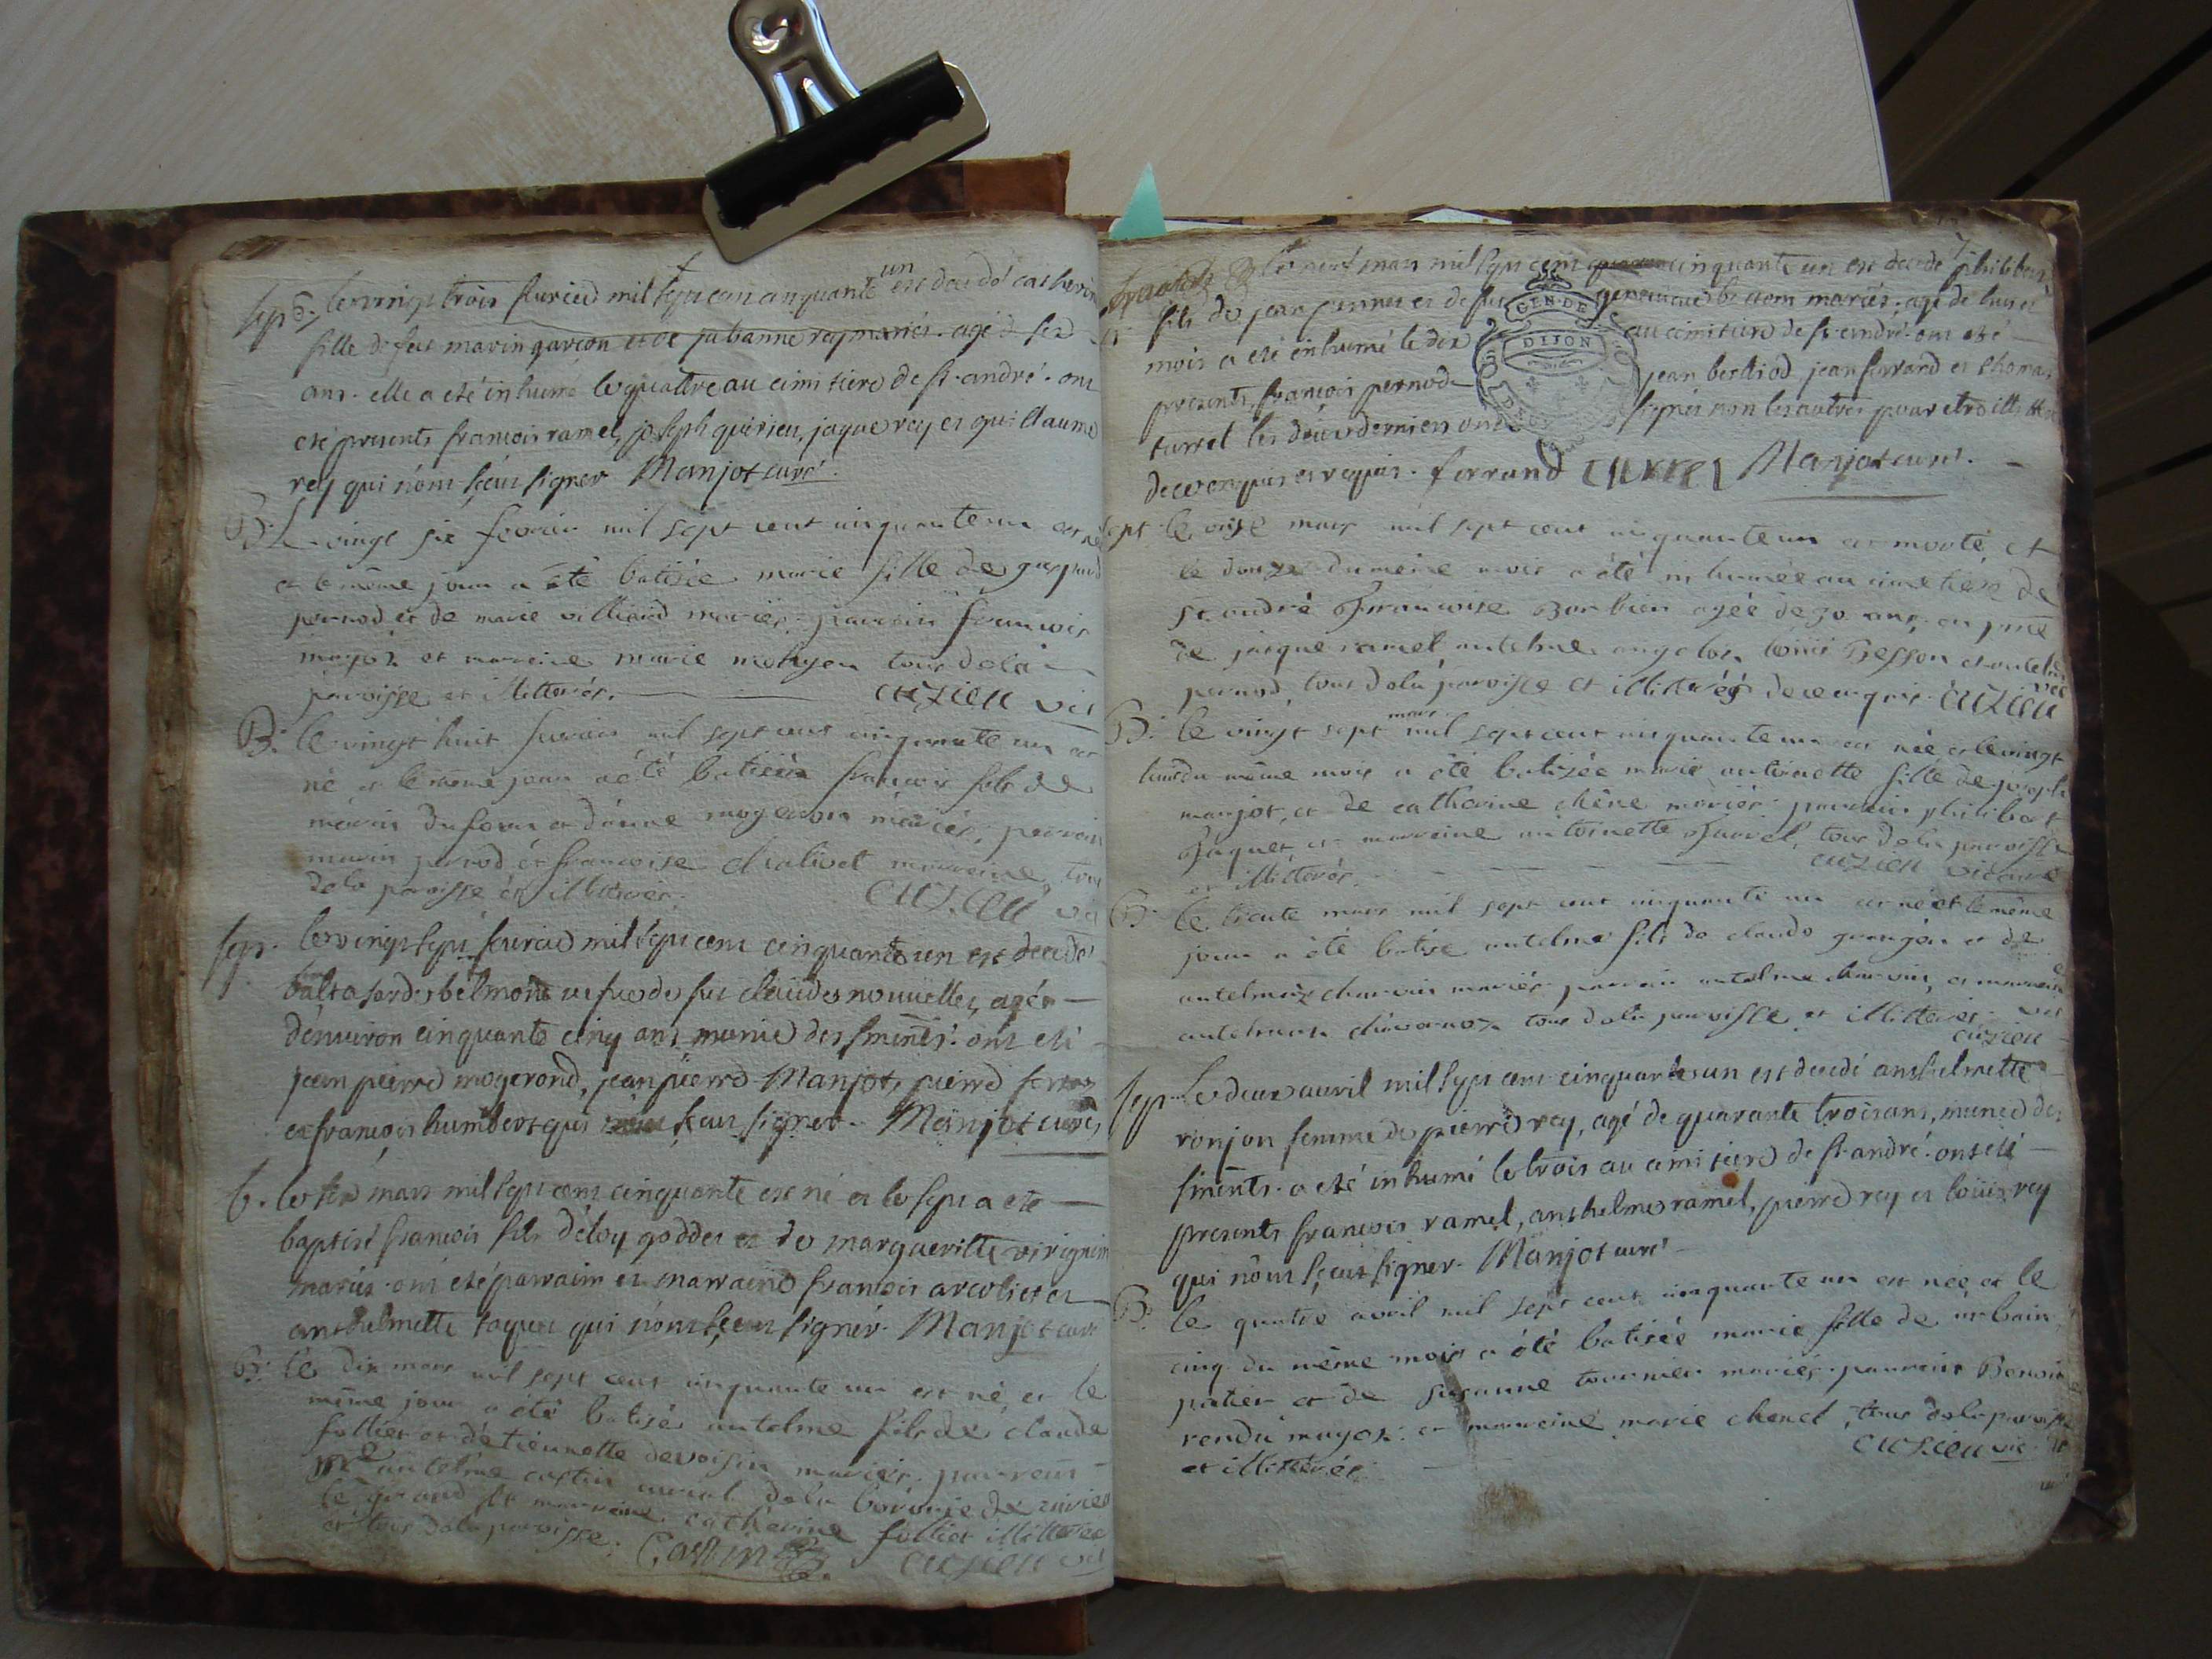 sep. le vingt trois fevrier mil sept cent cinquante un est decedé catherine
fille de feu marin garçon et de jabanne rey mariés. agé de
ans. elle a eté inhumé le quattre au cimitiere de st. andré. ont
eté presents francois ramel, joseph quirieu, jaque rey et guillaume
rey qui n'ont sceu signer Manjot curé.
B. Le vingt six fevrier mil sept cent cinquante un est né
et le même jour a été batisée marie fille de gaspard
pernod et de marie villierd mariés. parrain francois
mayor et marreine marie tous de la
paroisse et illitterés. cuzieu vic
B. le vingt huit fevrier mil sept cent cinquante un est
né et le même jour a été batisée francois fils de
marin dufour et d'anne mogeron mariés, parrain
marin pernod et francoise chalivet marreine, tous
de la paroisse et illitterés. cuzieu vic
sep. le vingt sept fevrier mil sept cent cinquante un est decedé
baltasarde belmont vefve de feu claude nouvelle, agée
d'environ cinquante cinq ans munie des sments. ont eté
jean pierre mogerond, jean pierre Manjot, pierre
et francois humbert qui sceu signer. Manjot curé
b. le six mars mil sept cent cinquante est né et le sept a eté
baptisé francois fils d'eloy goddet et de margueritte virignin
mariés. ont eté parrain et marraine francois arvoliet et
anthelmette jaquet qui n'ont sceu signér. Manjot curé
B. le dix mars mil sept cent cinquante un est né et le
même jour a été batisé antelme fils de claude
folliet et d'étiennette devoisin mariés. parrein
Me antelme castin curial de la baronie de
le grand et marreine catherine folliet illitterée
et tous de la paroisse. Castin cuzieu vic
7
le neuf mars mil sept cent cinquante un est decedé philibert
fils de jean pernet et de feue mariés, agé de huit
mois a eté inhumé le dix au cimitiere de st. andré. ont eté
presents francois pernod jean berthod jean ferrand et thomas
turrel les deux derniers ont signés non les autres pour etre illitterés
de ce enquis et requis. ferrand turrel Manjot curé.
GEN. DE DIJON
sept. le onze mars mil sept cent cinquante un est morte et
le douze du même mois a été inhumée au cimetiere de
st. andré francoise Barbier agée de 30 ans. en présence
de jaque ramel antelme louis Besson et antelme
pernod tous de la paroisse et illitterés de ce enquis. cuzieu vic
B. le vingt sept mars mil sept cent cinquante un est née et le vingt
huit du même mois a été batisée marie antoinette fille de joseph
manjot, et de catherine chêne mariés. parrein philibert
Jaquet et marreine antoinette tous de la paroisse
et illitterés. cuzieu vicaire
B. le trente mars mil sept cent cinquante un est né et le même
jour a été batisé antelme fils de claude grangéa et de
antelmaz charvin mariés. parrain antelme charvin, et marreine
antelmaz tous de la paroisse et illitterés. cuzieu vic
sep. Le deux avril mil sept cent cinquante un est decedé anthelmette
ronjon femme de pierre rey, agé de quarante trois ans, munie des
sments. a eté inhumé le trois au cimitiere de st. andré. ont eté
presents francois ramel, anthelme ramel, pierre rey et louis rey
qui n'ont sceu signer. Manjot curé
B. le quatre avril mil sept cent cinquante un est née et le
cinq du même mois a été batisée marie fille de urbain
patier et de susanne tournier mariés. parrain Benoit
rendu mayor et marreine marie chenel, tous de la paroisse
et illitterés. cuzieu vic.